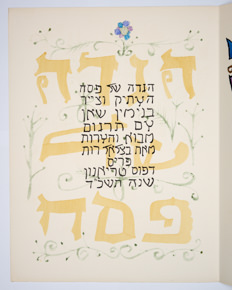 הגדה
של
פסח
הגדה של פסח
העתיק וצייר
בנימין שאן
עם תרגום
מבוא והערות
מאת בצלאל רות
פריס
דפוס טריאנון
שנת